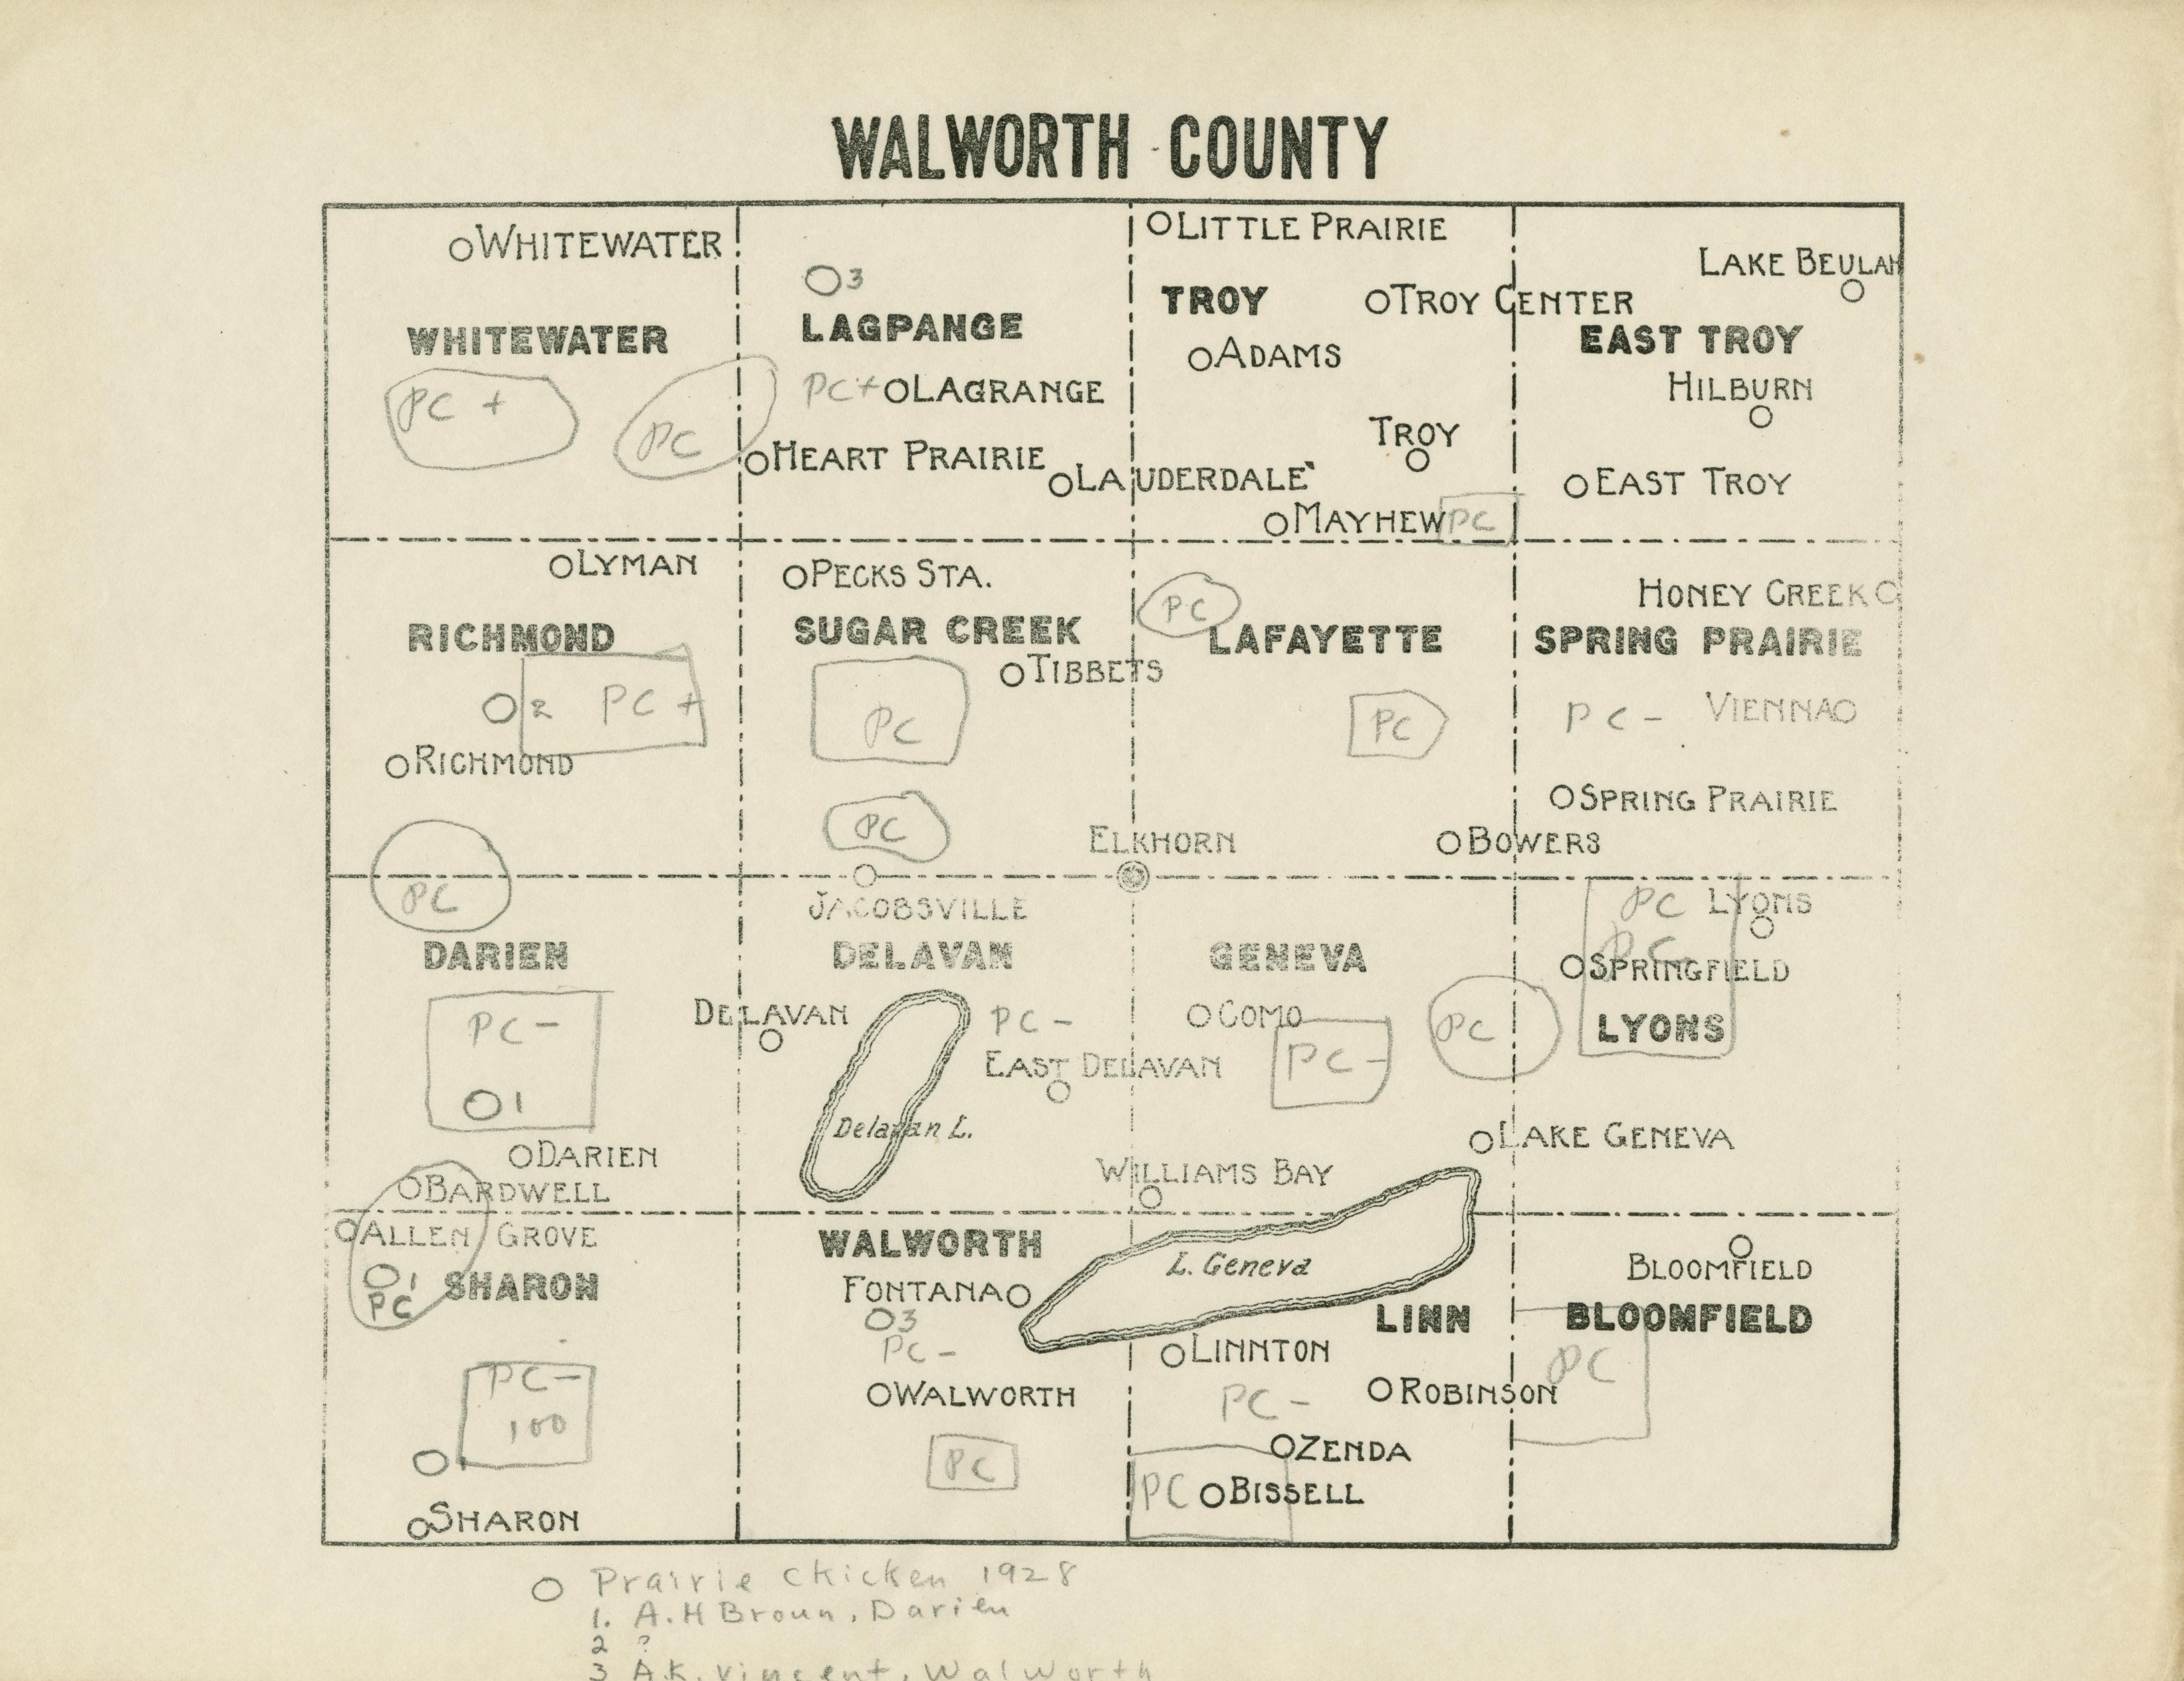 WALWORTH COUNTY
WHITEWATER
LITTLE PRAIRIE
LAKE BEULAH
3
TROY
TROY CENTER
WHITEWATER
LAGPANGE
EAST TROY
ADAMS
PC +
PC+ LAGRANGE
HILBURN
PC
TROY
HEART PRAIRIE
LAUDERDALE
EAST TROY
MAYHEW PC
LYMAN
PECKS STA.
HONEY CREEK
PC
RICHMOND
SUGAR CREEK
LAFAYETTE
SPRING PRAIRIE
TIBBETS
2 PC +
PC
PC
PC - VIENNA
RICHMOND
SPRING PRAIRIE
PC
ELKHORN
BOWERS
PC
JACOBSVILLE
PC LYONS
PC
DARIEN
DELAVAN
GENEVA
SPRINGFIELD
DELAVAN
PC -
COMO
PC -
PC
LYONS
EAST DELAVAN
PC -
1
Delavan L.
LAKE GENEVA
DARIEN
WILLIAMS BAY
BARDWELL
ALLEN GROVE
WALWORTH
L. Geneva
BLOOMFIELD
1
PC
SHARON
FONTANA
3
LINN
BLOOMFIELD
PC -
LINNTON
PC
PC -
100
WALWORTH
PC -
ROBINSON
PC
ZENDA
PC BISSELL
SHARON
Prairie chicken 1928
1. A.H Broun, Darien
2 ?
3 A.K. Vincent, Walworth